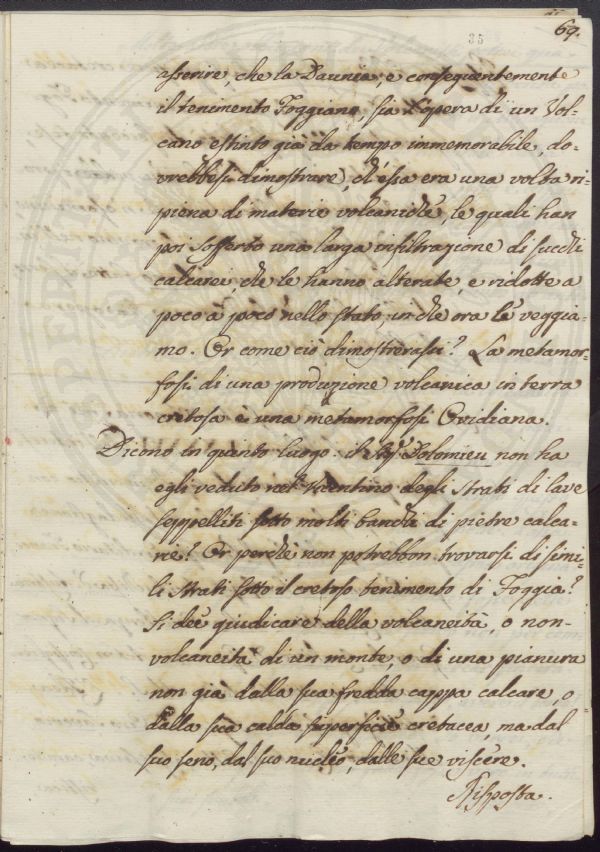 69.
35
asserire, che la Daunia, e conseguentemente
il tenimento Foggiano, sia l'opera di un Vol-
cano estinto già da tempo immemorabile, do-
vrebbesi dimostrare, ch'essa era una volta ri-
piena di materie volcaniche, le quali han
poi sofferto una larga infiltrazione di succhi
calcarei che le hanno alterate, e ridotte a
poco a poco nello stato, in che ora le veggia-
mo. Or come ciò dimostrerassi? La metamor-
fosi di una produzione volcanica in terra
cretosa è una metamorfosi Ovidiana.
Dicono in quanto luogo: il Sig.r Dolomieu non ha
egli veduto nel Vicentino degli strati di lave
seppelliti sotto molti banchi di pietre calca-
rie? Or perchè non potrebbon trovarsi di simi-
li strati sotto il cretoso tenimento di Foggia?
Si dee giudicare della volcaneità, o non-
volcaneità di un monte, o di una pianura
non già dalla sua fredda cappa calcare, o
dalla sua calda superficie cretacea, ma dal
suo seno, dal suo nucleo, dalle sue viscere.
Risposta.